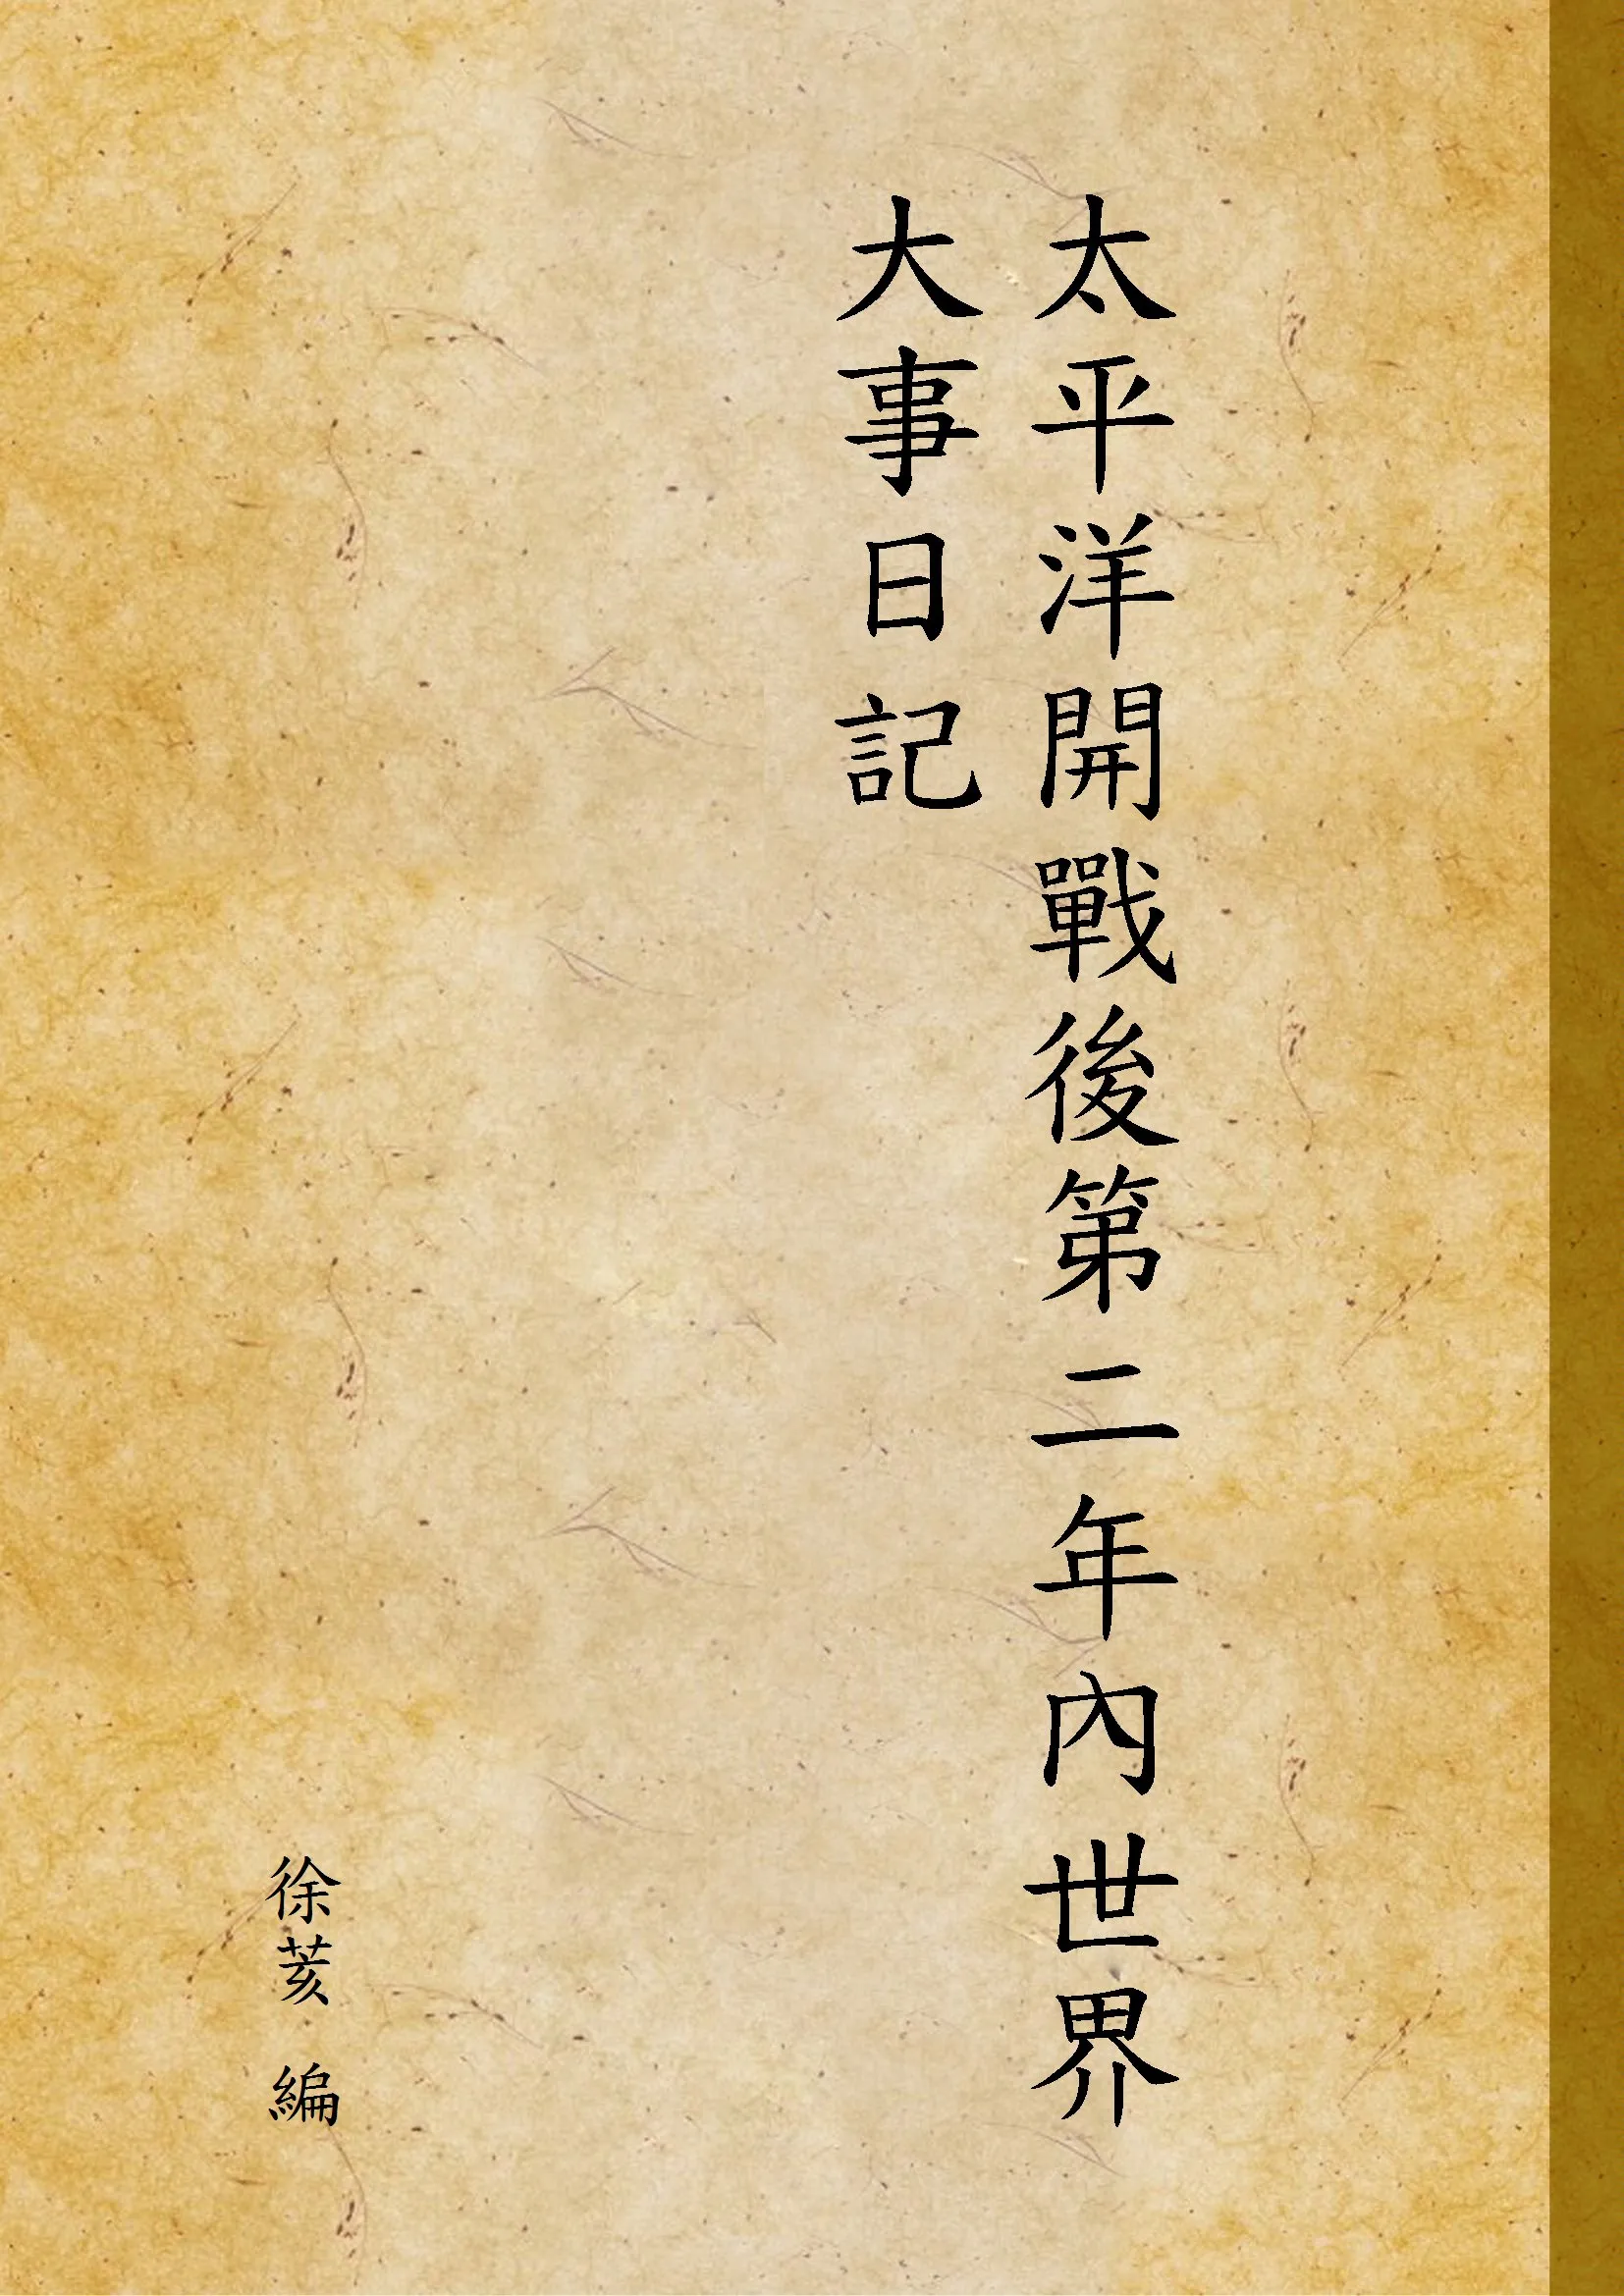 太平洋開戰後第二年內世界
大事日記
徐荄 編